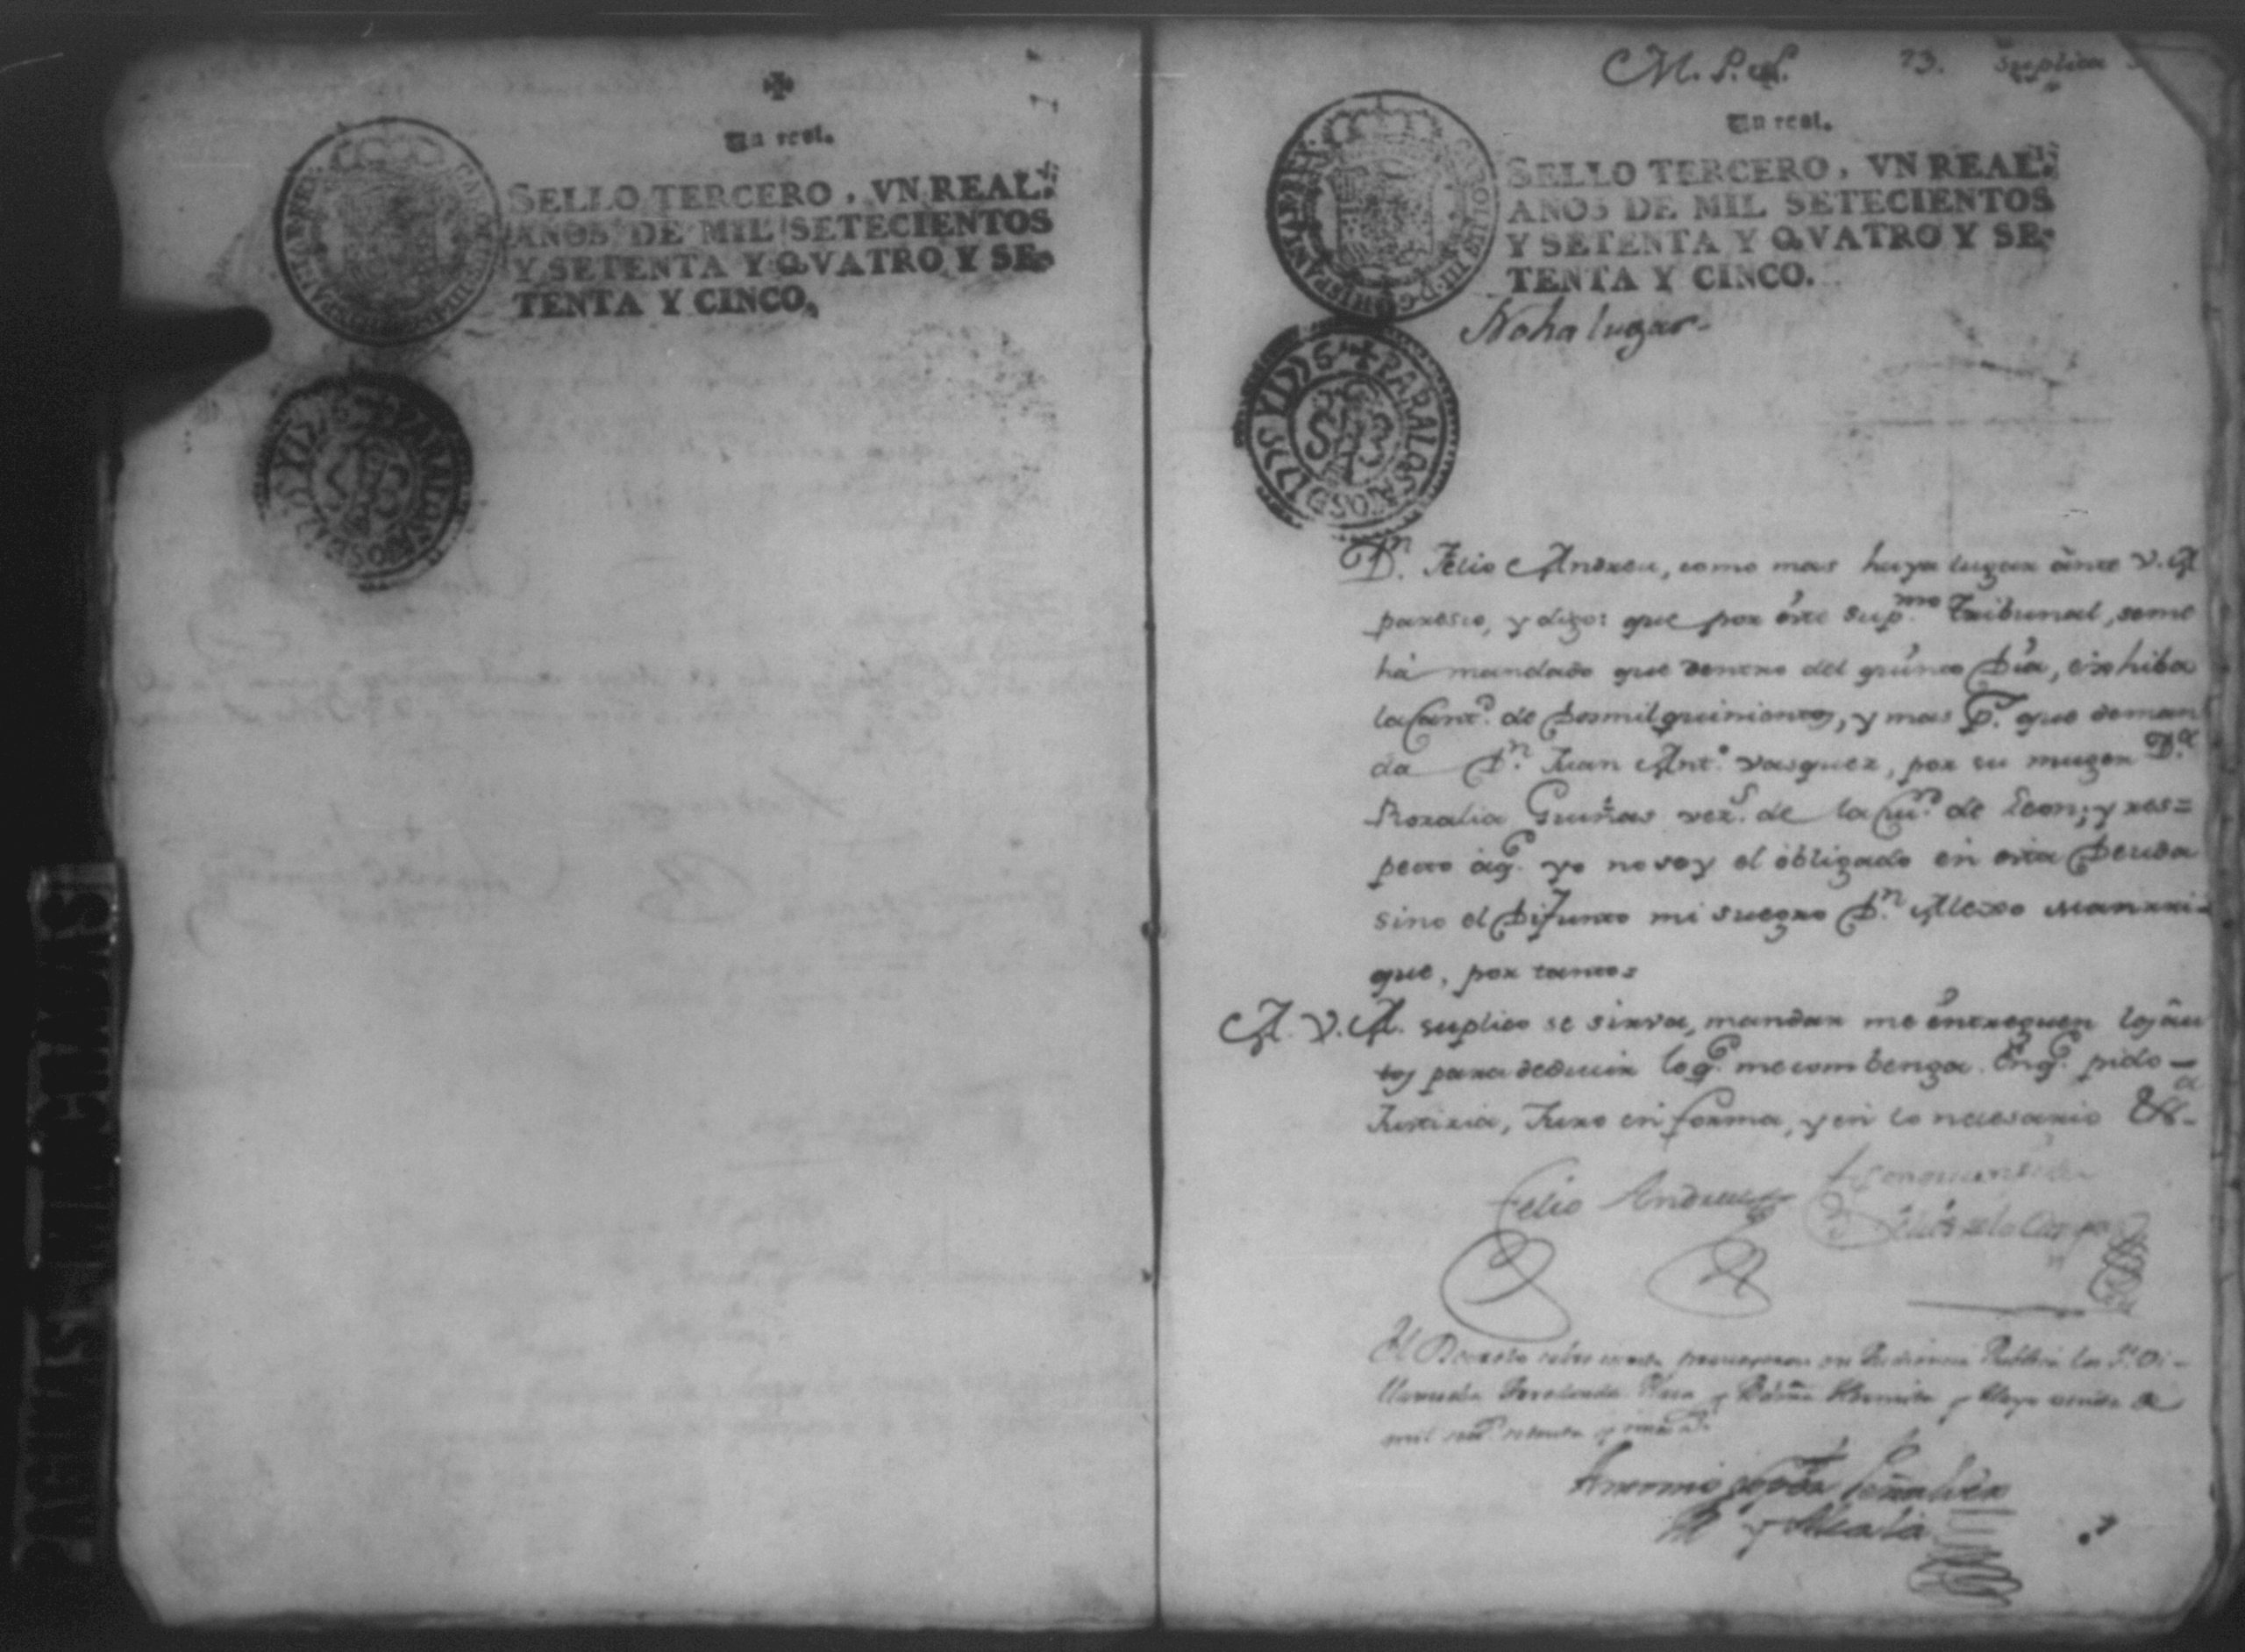 Un real.
SELLO TERCERO, VN REAL:
AÑOS DE MIL SETECIENTOS
Y SETENTA Y QVATRO Y SE-
TENTA Y CINCO.
M. P. S. 73. Suplica
Un real.
SELLO TERCERO, VN REAL:
AÑOS DE MIL SETECIENTOS
Y SETENTA Y QVATRO Y SE-
TENTA Y CINCO.
CAROLUS III D G HISPANIAR REX
No ha lugar
PARA LOS AÑOS D 1775 Y 1776
Dn. Felio Andreu, como mas haya lugar ante V. A
paresco, y digo: que por este Supmo. Tribunal, seme
há mandado que dentro del quinto Dia, exhiba
la Cantd. de Dosmil quinientos, y mas ps. que deman
da Dn. Juan Antº. Vasquez, por su muger Dª.
Rosalia Gruñas vezs. de la Ciud. de Leon; y res=
pecto aq. yo no soy el obligado en esta Deuda
sino el Difunto mi suegro Dn. Alexo Manrri-
que, por tanto:
A. V. A. suplico se sirva, mandar me entreguen los au
tos para deducir loq. me combenga. Enq. pido
Justizia, Juro en forma, y en lo nesesario &a.
Felio Andreu
El Decreto sobre en Audiencia Publica los Ss. Vi-
llarrueda y y Mayo de
mil setº. setenta y
Antonio Lopez Peñalver
y Alcala